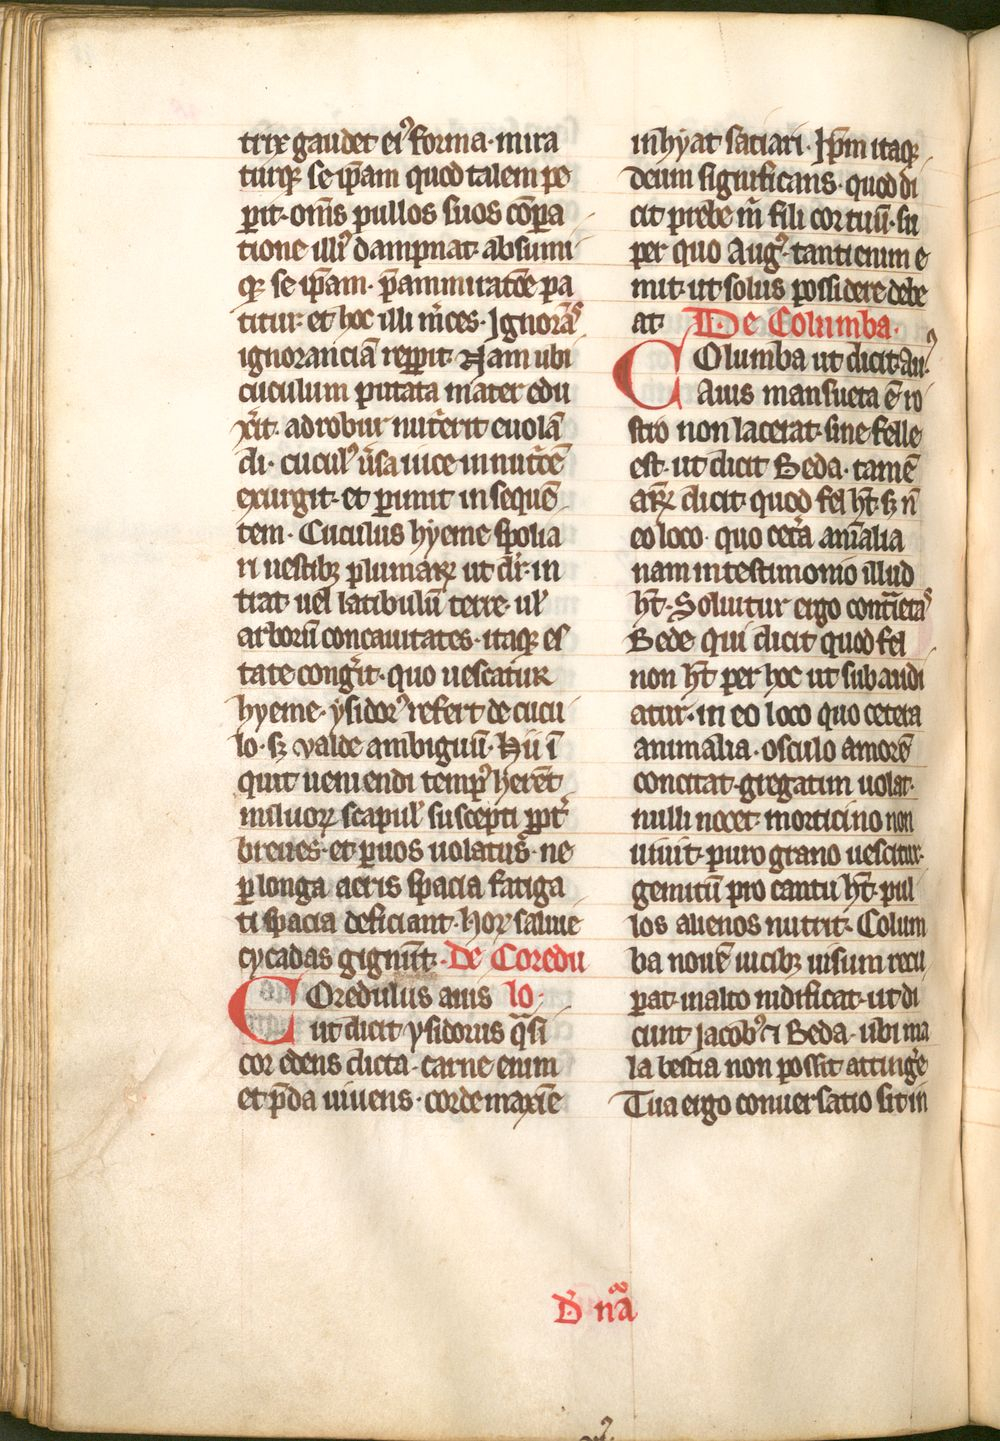 trix gaudet ei⁹ forma· mira
turqꝫ se ip̄am quod talem pe
ꝑit· om̄s pullos suos cōꝑa
tione illi⁹ dampnat· absumi
qꝫ se ip̄am· p̄ ammiratōe pa
titur· et hoc illi m̄ces· Ignorās
ignoranciā reꝑit· Nam ubi
cuculum putata mater edu
x̄it· ad robur nut̄ierit euolā
di· cucul⁹ ūsa uice in nut̄cē
exurgit· et ꝑimit in sequē
tem· Cuculus hyeme spolia
ri uestibꝫ plumarꝝ ut dr̄· in
trat· uel latibulū terre· ul̓
arborū concauitates· itaqꝫ es
tate cong̓it· quo uescatur
hyeme· ysidor⁹ refert de cucu
lo· sꝫ valde ambiguū· Hii ī
quit ueniendi temp⁹ herēt
miluorꝝ scapul̓ suscepti ꝓpt̓
breues· et ꝑuos uolatus̓· ne
ꝑ longa aeris spacia fatiga
ti spacia deficiant· Horꝝ saliue
cycadas gignūt· De Coredu
Coredulus auis lo·
ut dicit ysidorus q̄si
cor edens dicta· carne enim
et p̄da uiuens· corde maxīe
inhyat saciari· Ip̄m itaqꝫ
deum significans· quod di
cit prebe m̄ fili cor tuū· su
per quo Aug⁹· tanti enim e
mit· ut solus possidere debe
at· De Columba·
Columba ut dicit· Au⁹·
Auis mansueta ē ro
stro non lacerat· sine felle
est· ut dicit Beda· tamē
arꝝ· dicit· quod fel hт̄· sꝫ n̄
eo loco· quo cet̓a anīalia
nam in testimonio illud
ht̄· Soluitur ergo cont̓ietas
Bede qui dicit quod fel
non ht̄ per hoc ut subaudi
atur· in eo loco quo cetera
animalia· osculo amorē
concitat· gregatim uolat·
nulli nocet· morticino non
uiuit· puro grano uescitur·
gemitū pro cantu ht̄· pul
los alienos nutrit· Colum
ba nouē uicibꝫ uisum recu
ꝑat· in alto nidificat· ut di
cunt Jacob⁹ ⁊ Beda· ubi ma
la bestia non possit atting̓e
Tua ergo conuersatio sit in
D̓ nᷓa